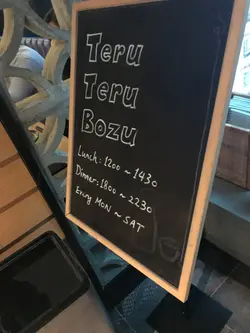 Teru
Teru
Bozu
Lunch: 1200 ~ 1430
Dinner: 1800 ~ 2230
Every MON ~ SAT